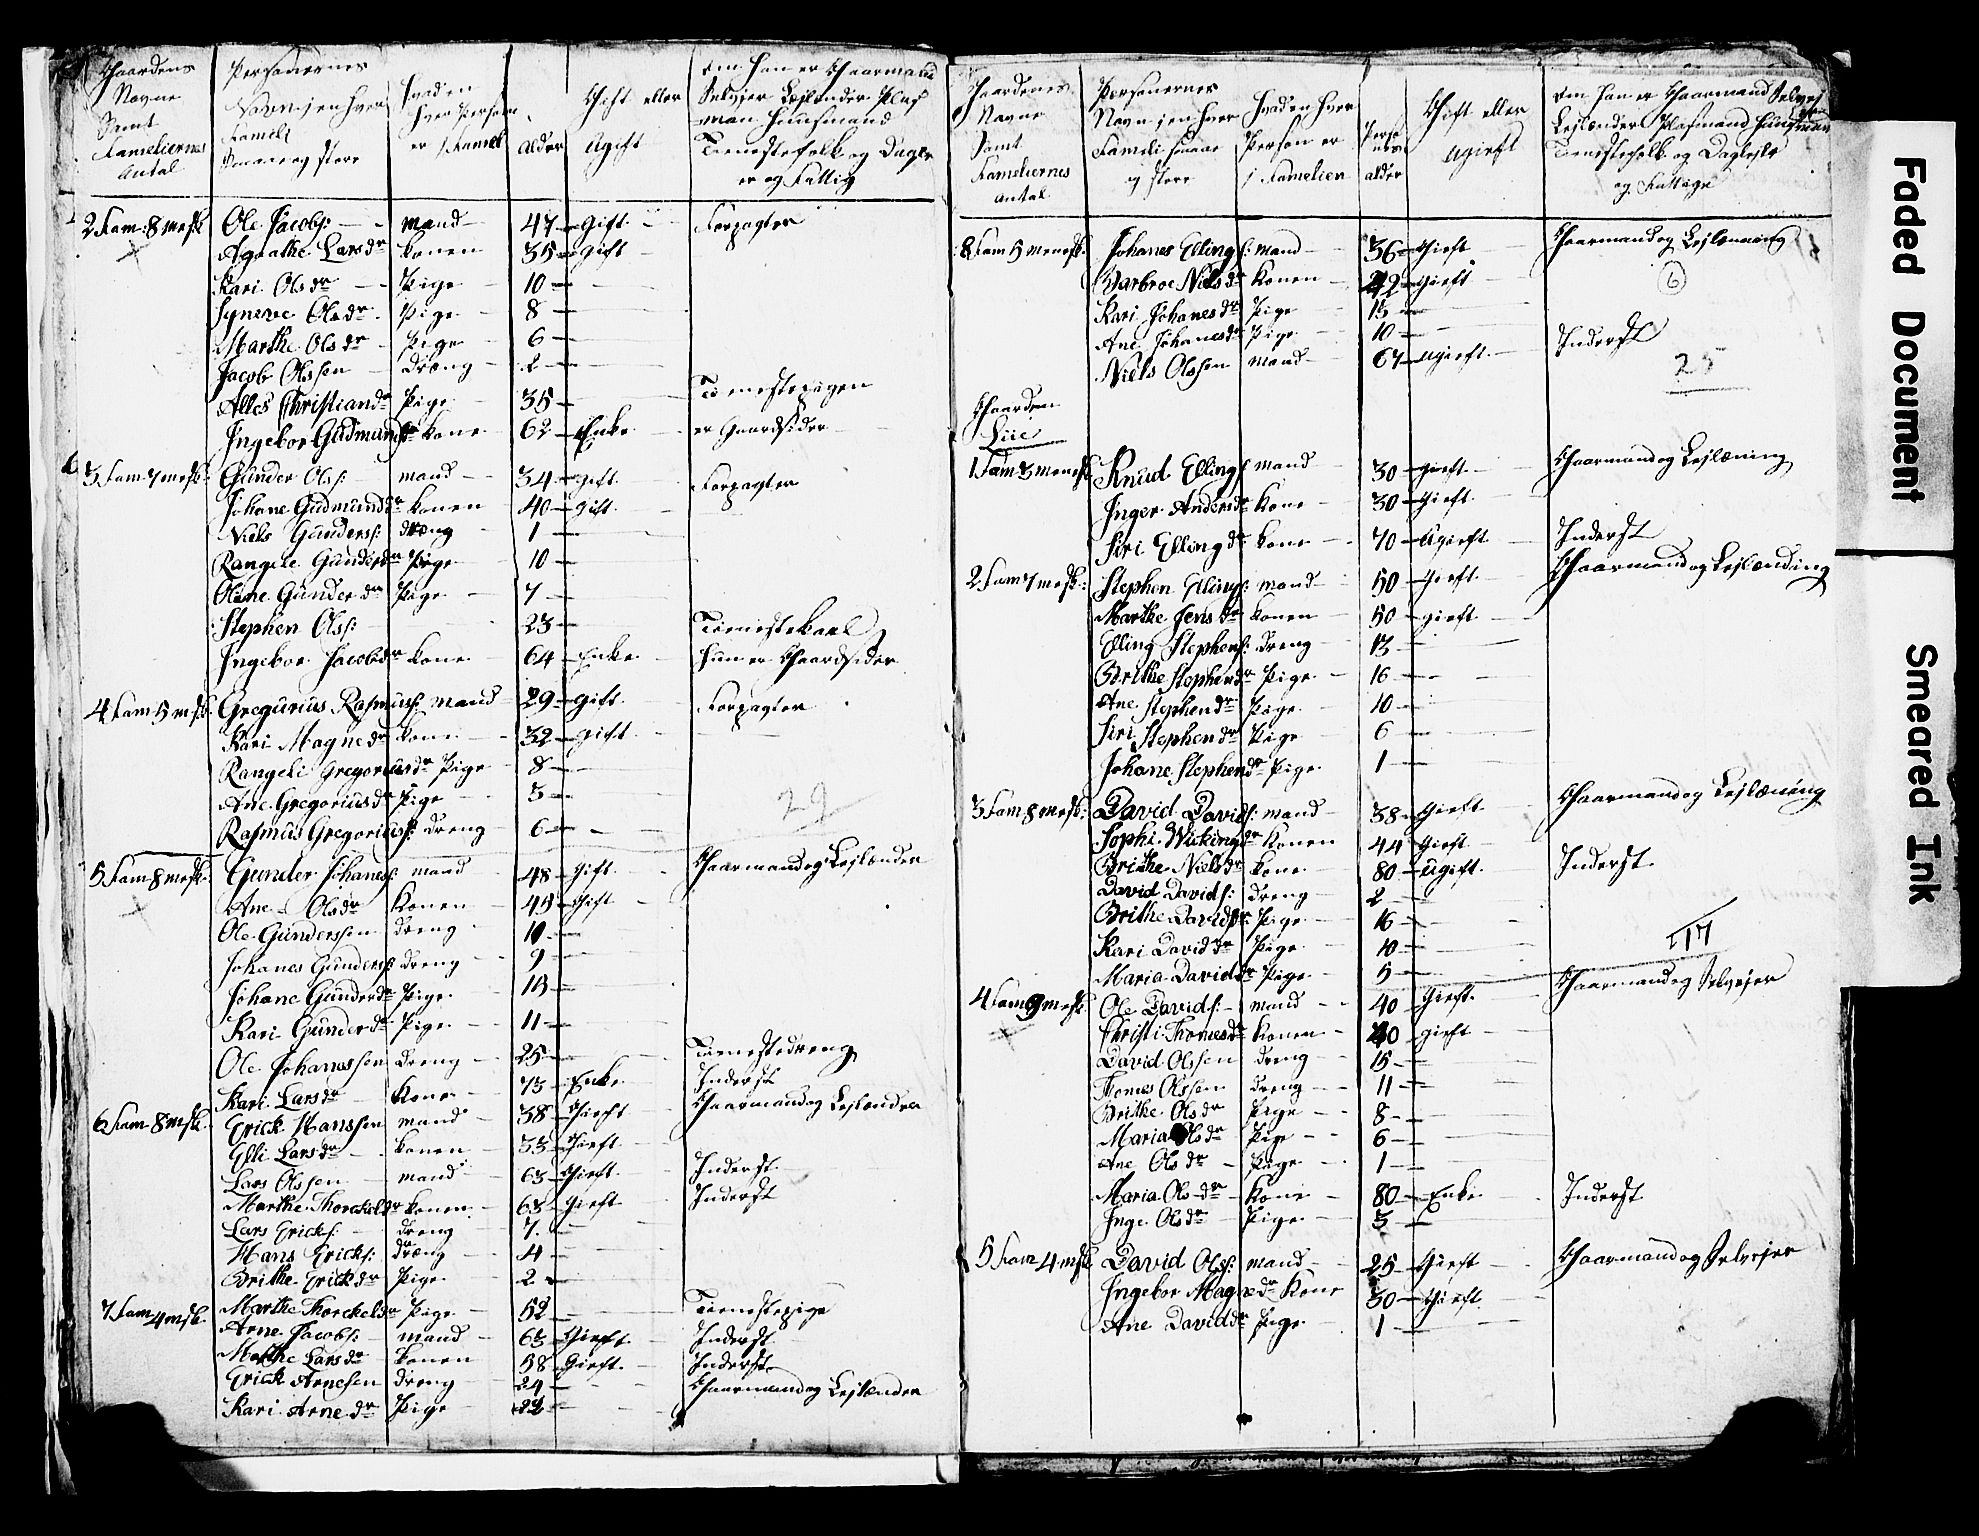 Gaardens
Navne
Samt
Fameliernes
Antal
Personernes
Navn i en hver
Famili
Smaa og store
Hvad en
hver Person
er i Famili
Alder
Gift eller
Ugift
Om han er Gaarmand
Selvejer Lejlænder Plas
man Huusmand
Tienestefolk og Dagle
er og Fattig
2 Fam: 8 mesk Ole Jacobs: mand 47 Gift Forpagter
Agaathe Larsdr konen 35 Gift
Kari Olsdr Pige 10
Syneve Olsdr Pige 8
Marthe Olsdr Pige 6
Jacob Olssen Dræng 2
Alles Christiandr Pige 35 Tienestepigen
Ingebor Gudmundsdr kone 62 Enke er Gaardsider
3 Fam 7 mesk: Gunder Olss: mand 34 gift Forpagter
Johane Gudmundsdr konen 40 gift
Niels Gunders: dræng 1
Rangele Gunderdr Pige 10
Oline Gunderdr Pige 7
Stephen Olss: 23 Tienestekarl
Ingebor Jacobsdr kone 64 Enke Hun er Gaardsider
4 Fam 5 msk: Gregurius Rasmuss: mand 29 gift Forpagter
Kari Magnedr kone 32 gift
Rangeli Gregoriusdr Pige 8
Ane Gregoriusdr Pige 3
29
Rasmus Gregoriuss: dreng 6
5 Fam 8 mesk: Gunder Johaness: mand 48 Gift Gaarmand og Lejlænder
Ane Olsdr Konen 45 Gift
Ole Gunderssen dreng 10
Johanes Gunderss: dreng 9
Johane Gunderdr Pige 15
Kari Gunderdr Pige 11
Ole Johanessen dreng 25 Tienestedreng
Kari Larsdr Kone 73 Enke Inderst
6 Fam 8 msk: Erick Hanssen mand 38 Gieft Gaarmand og Lejlænder
Elli Larsdr konen 33 Gieft
Lars Olssen mand 63 Gieft Inderst
Marthe Thorckeldr konen 63 Gieft Inderst
Lars Ericks: dreng 7
Hans Ericks: dræng 4
Brithe Erickdr Pige 2
Marthe Thorckeldr Pige 52 Tienestepige
7 Fam 4 msk: Arne Jacobs: mand 63 Gieft Inderst
Marthe Larsdr konen 58 Gieft Inderst
Erick Arnesen dreng 24 Gaarmand og Lejlænder
Kari Arnedr Pige 22
Gaardenes
Navne
Samt
Fameliernes
Antal
Personernes
Navn i en hver
Famili smaae
og store
Hvad en hver
Person er
i Famelien
Perso
ners
alder
Gift eller
ugieft
Om han er Gaarmand Selvej
Lejlænder Plasmand Huusman
Tienestefolk og Daglejer
og Fattige
8 Fam 5 mensk: Johanes Ellings: mand 36 Gieft Gaarmand og Lejlænning
Barbroe Nielsdr konen 42 Gieft 6
Kari Johanesdr Pige 15
Ane Johanesdr Pige 10
Niels Olssen mand 67 ugieft Inderst
25
Gaarden
Liie
1 Fam 3 mensk: Knud Ellings: mand 30 gieft Gaarmand og Lejlæning
Inger Andersdr kone 30 gieft
Siri Ellingdr kone 70 Ugieft Inderst
2 Fam 7 mesk: Stephen Ellings: mand 50 gieft Gaarmand og Lejlænding
Marthe Jensdr konen 50 gieft
Elling Stephens: dreng 13
Brithe Stephendr Pige 16
Ane Stephendr Pige 10
Siri Stephendr Pige 6
Johane Stephendr Pige 1
3 Fam 8 mesk: David Davids: mand 38 gieft Gaarmand og Lejlæning
Sophi Wickingdr Konen 44 gieft
Brithe Nielsdr kone 80 Ugieft Inderst
David Davids: dreng 2
Brithe Daviddr Pige 16
Kari Daviddr Pige 10
17
Maria Daviddr Pige 5
4 Fam 9 mesk Ole Davids: mand 40 Gieft Gaarmand og Selvejer
Christi Thomesdr konen 40 gieft
David Olssen dreng 15
Thomes Olssen dreng 11
Brithe Olsdr Pige 8
Maria Olsdr Pige 6
Ane Olsdr Pige 1
Maria Olsdr Kone 80 Enke Inderst
Inge Olsdr Pige 3
5 Fam 4 msk David Olss: mand 25 Gieft Gaarmand og Selvejer
Ingebor Magnedr Kone 30 Gieft
Ane Daviddr Pige 1
Faded Document
Smeared Ink